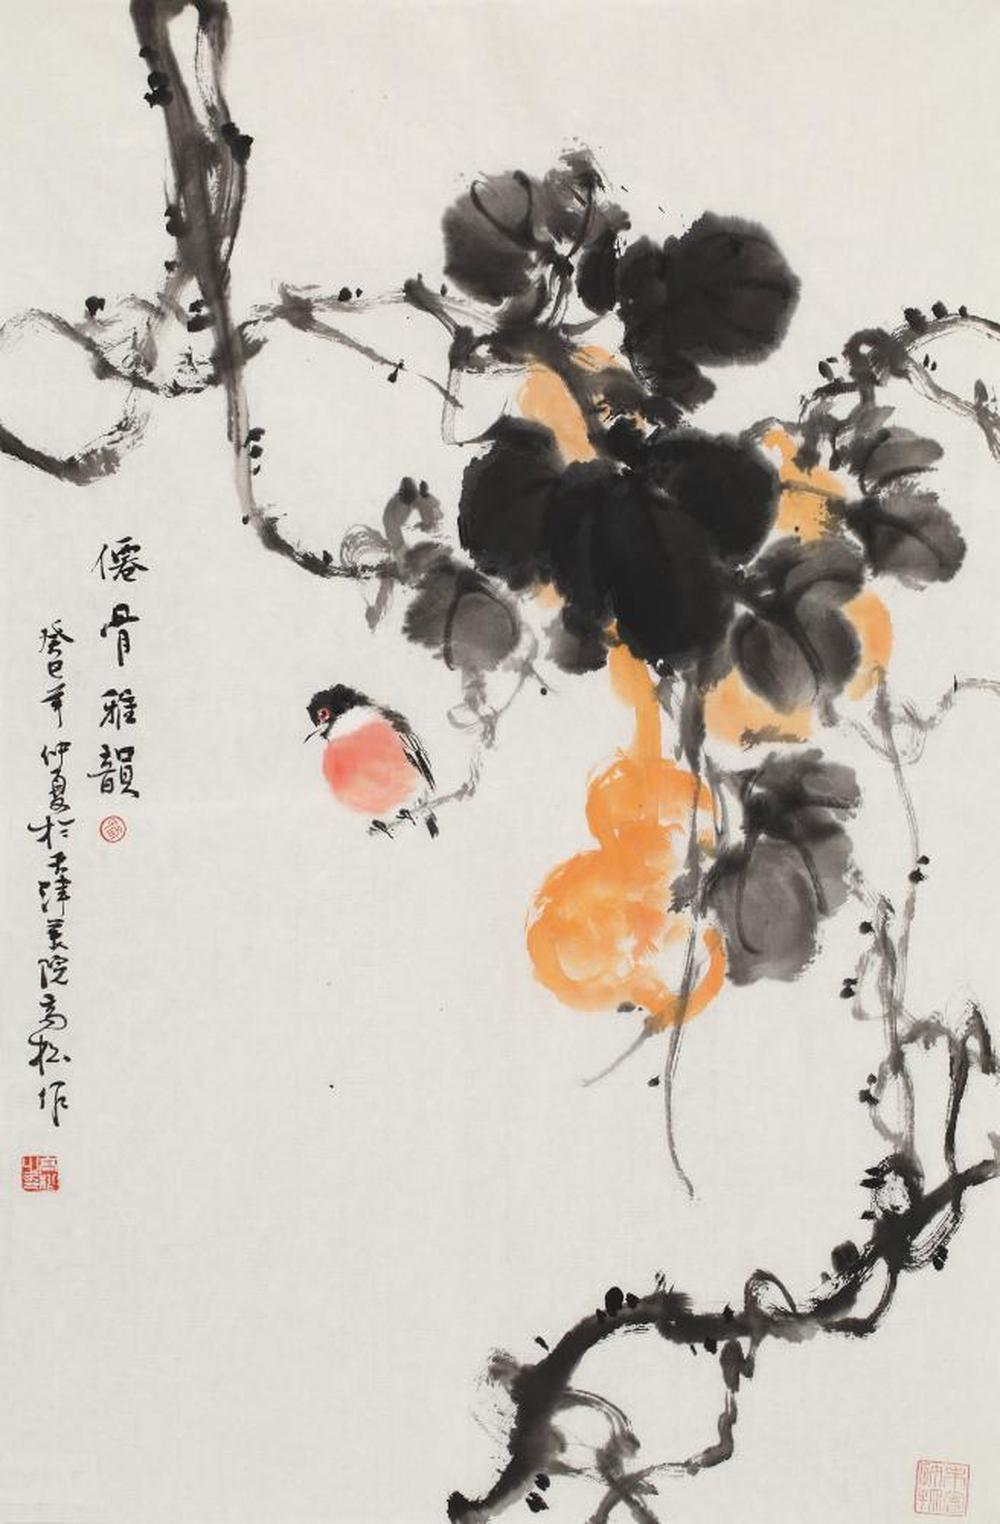 僊骨雅韻
癸巳年仲夏於天津美院高松作